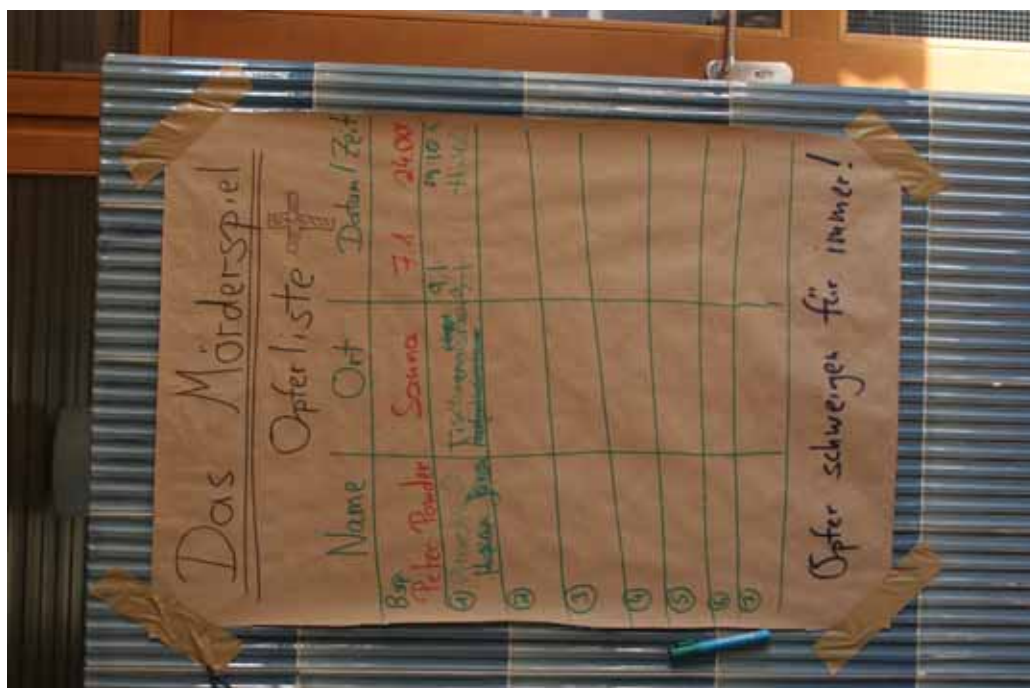 Das Mörderspiel
Opferliste
Name Ort Datum/Zeit
Bsp. Peter Powder Sauna 7.1 24.00
① 9.1
②
③
④
⑤
⑥
⑦
Opfer schweigen für immer!